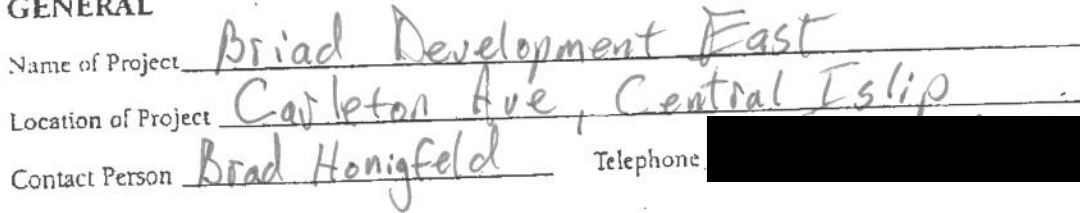 GENERAL
Name of Project Briad Development East
Location of Project Carleton Ave, Central Islip
Contact Person Brad Honigfeld Telephone